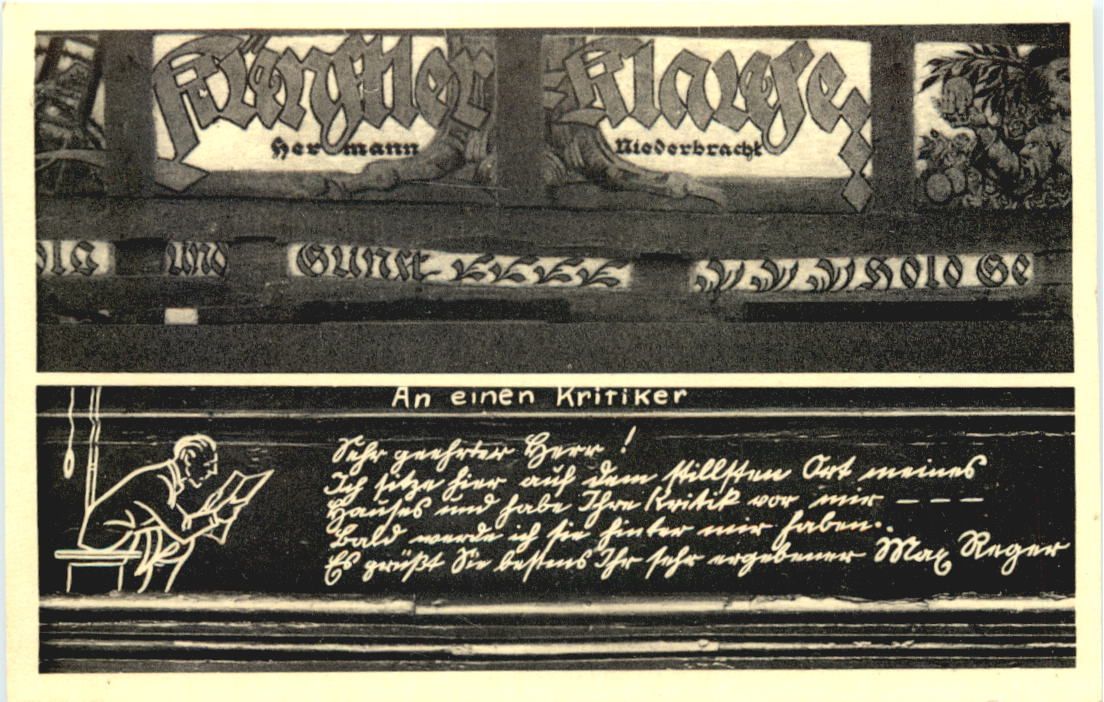 Künstler Klause
Hermann Niederbracht
und Gunst Hold Ge
An einen Kritiker
Sehr geehrter Herr!
Ich sitze hier auf dem stillsten Ort meines
Hauses und habe Ihre Kritik vor mir – – –
Bald werde ich sie hinter mir haben.
Es grüßt Sie bestens Ihr sehr ergebener Max Reger